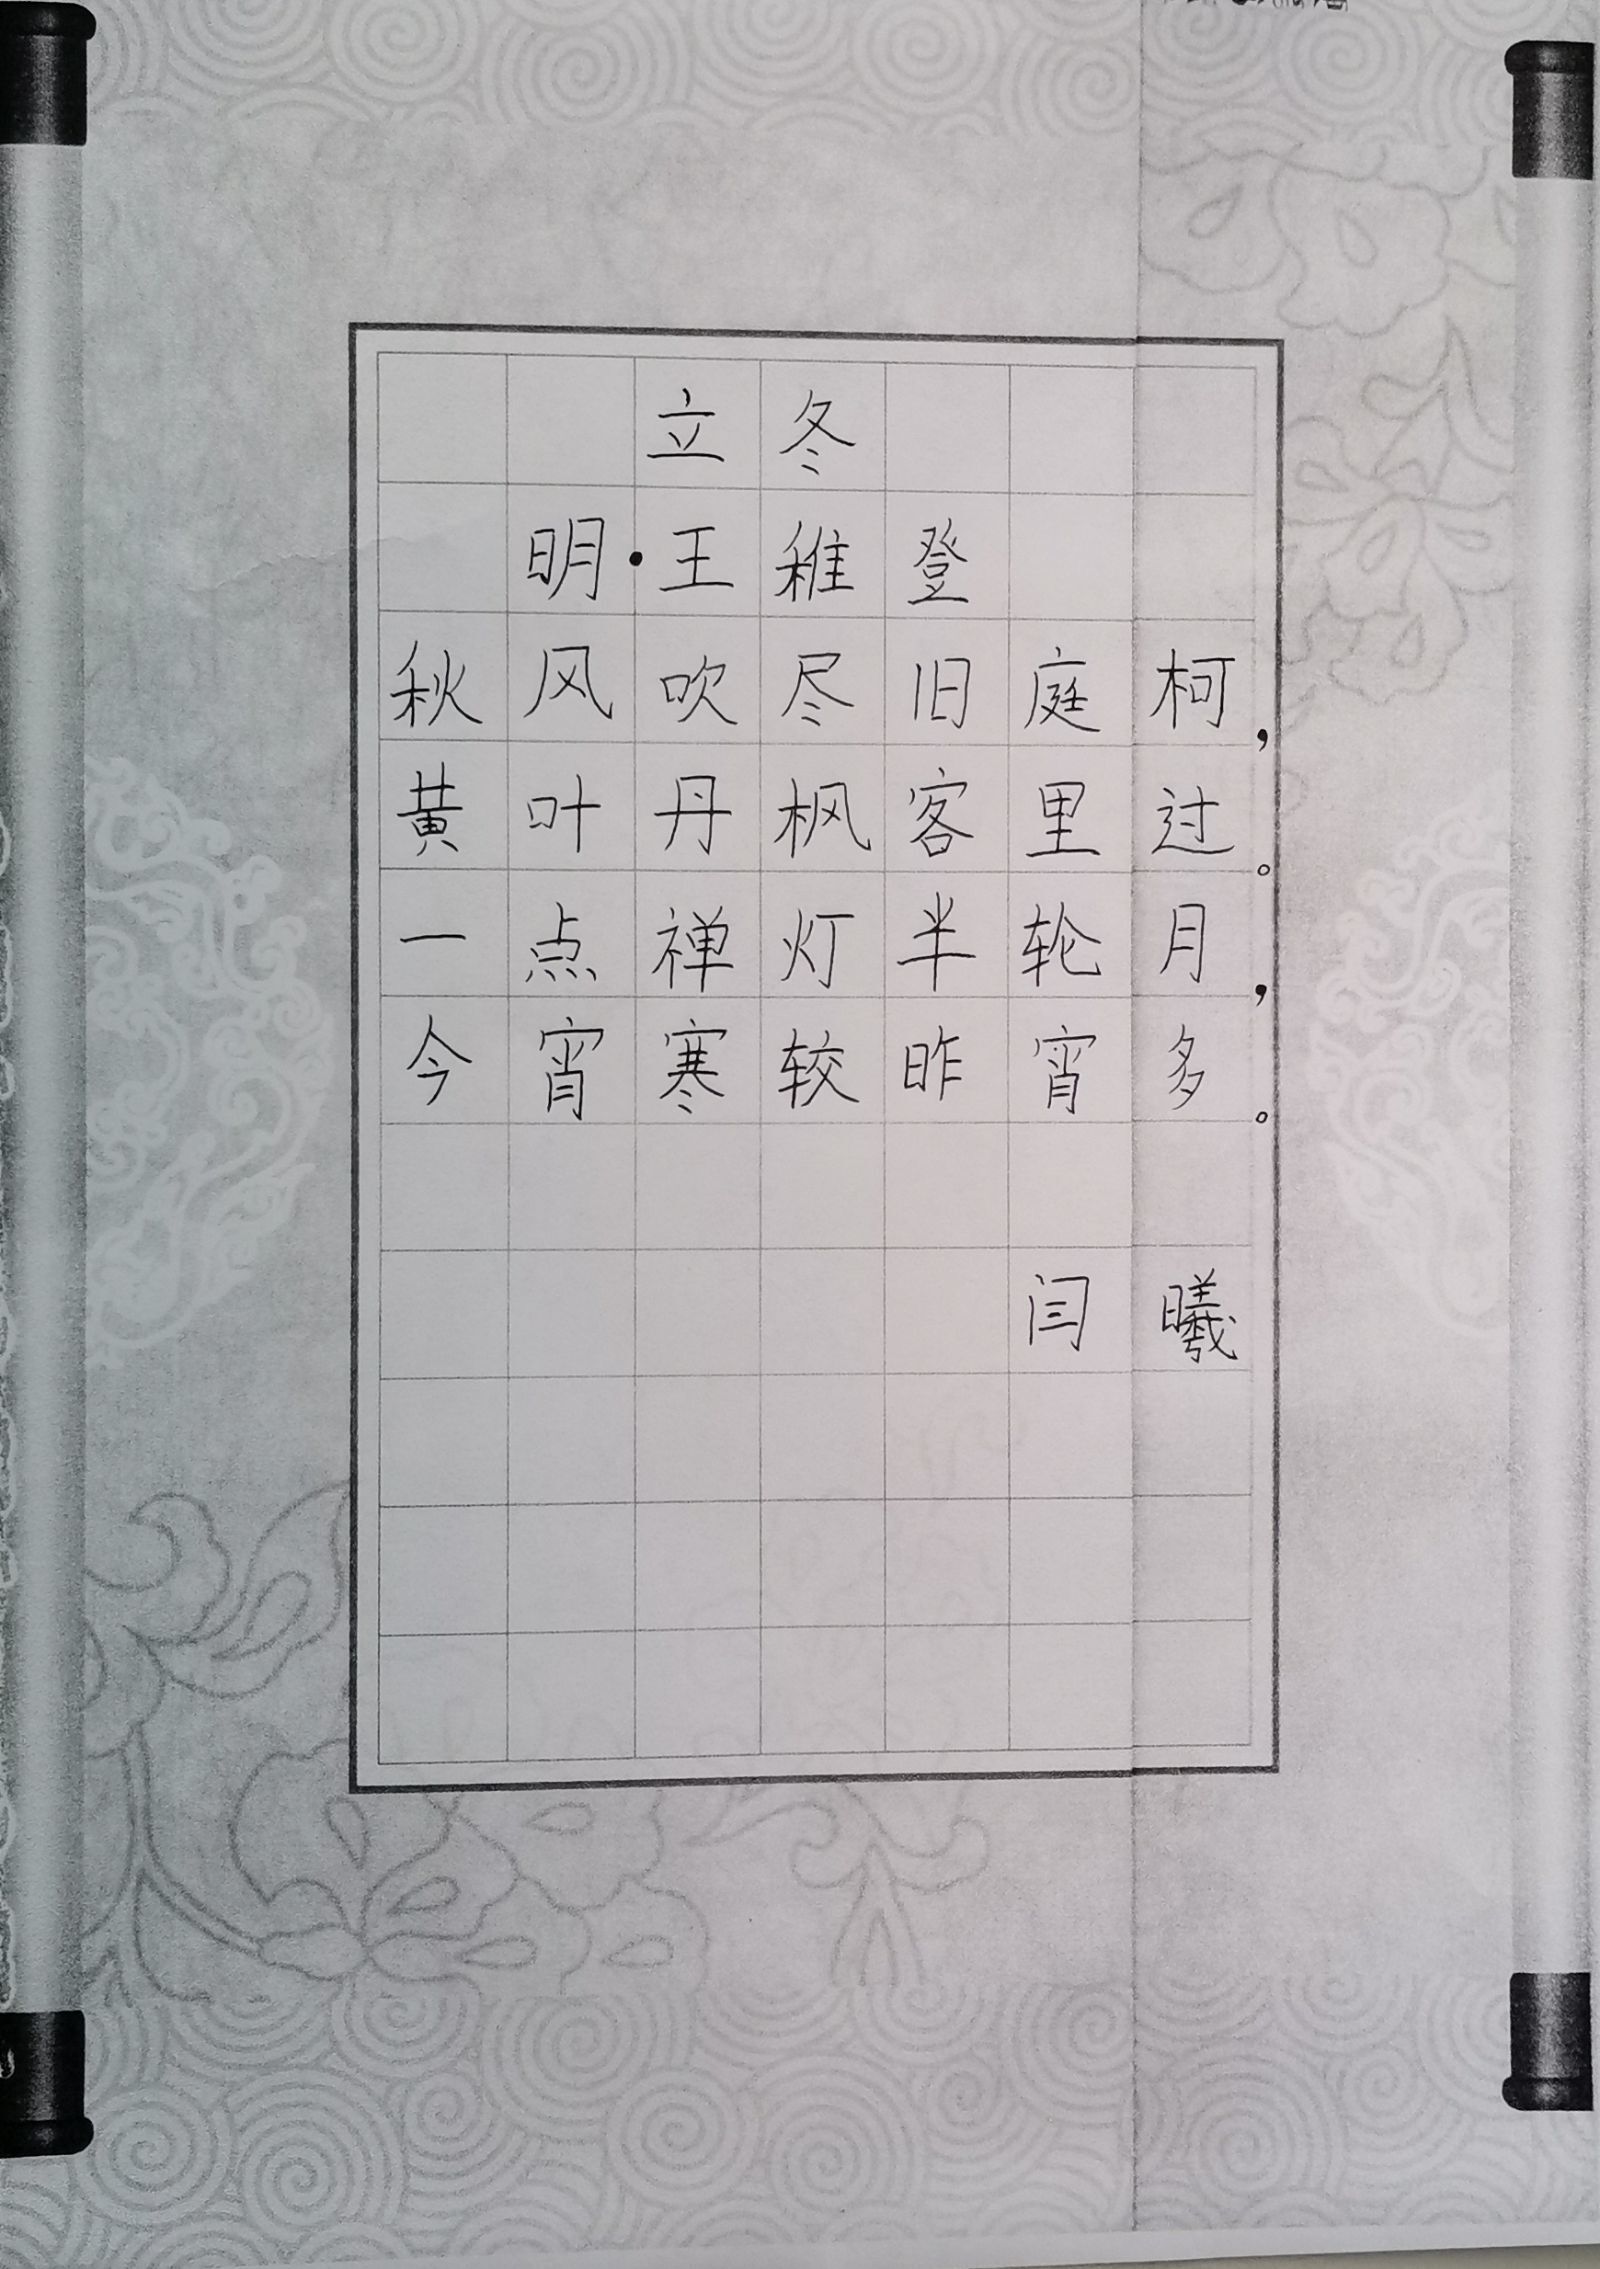 立冬
明·王稚登
秋风吹尽旧庭柯，
黄叶丹枫客里过。
一点禅灯半轮月，
今宵寒较昨宵多。
闫曦